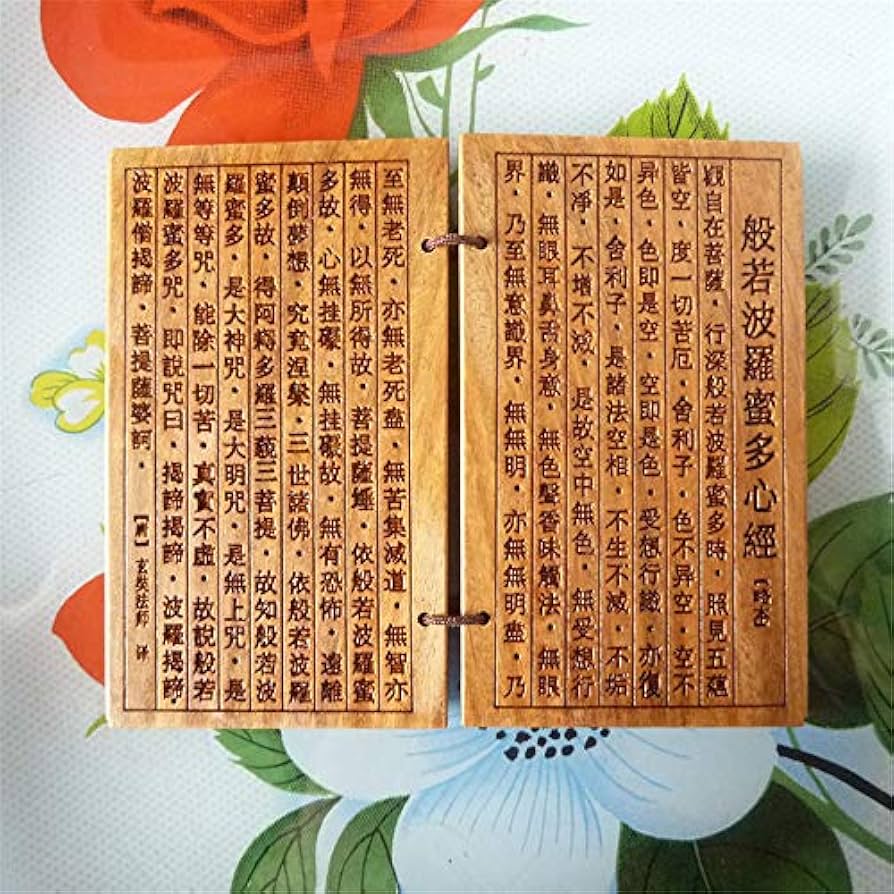 般若波羅蜜多心經
觀自在菩薩．行深般若波羅蜜多時．照見五蘊
皆空．度一切苦厄．舍利子．色不异空．空不
异色．色即是空．空即是色．受想行識．亦復
如是．舍利子．是諸法空相．不生不滅．不垢
不淨．不增不減．是故空中無色．無受想行
識．無眼耳鼻舌身意．無色聲香味觸法．無眼
界．乃至無意識界．無無明．亦無無明盡．乃
至無老死．亦無老死盡．無苦集滅道．無智亦
無得．以無所得故．菩提薩埵．依般若波羅蜜
多故．心無挂礙．無挂礙故．無有恐怖．遠離
顛倒夢想．究竟涅槃．三世諸佛．依般若波羅
蜜多故．得阿耨多羅三藐三菩提．故知般若波
羅蜜多．是大神咒．是大明咒．是無上咒．是
無等等咒．能除一切苦．真實不虛．故說般若
波羅蜜多咒．即說咒曰．揭諦揭諦．波羅揭諦．
波羅僧揭諦．菩提薩婆訶．
【唐】玄奘法师 译